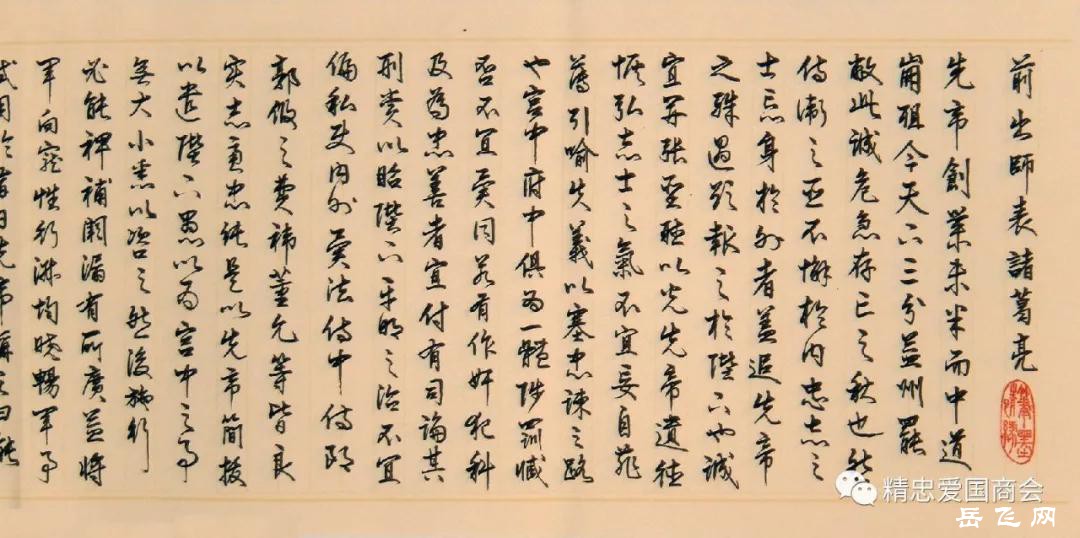 前出師表諸葛亮
先帝創業未半而中道
崩殂今天下三分益州罷
敝此誠危急存亡之秋也然
侍衛之臣不懈於內忠志之
士忘身於外者蓋追先帝
之殊遇欲報之於陛下也誠
宜開張聖聽以光先帝遺德
恢弘志士之氣不宜妄自菲
薄引喻失義以塞忠諫之路
也宮中府中俱為一體陟罰臧
否不宜異同若有作奸犯科
及為忠善者宜付有司論其
刑賞以昭陛下平明之治不宜
偏私使內外異法侍中侍郎
郭攸之費禕董允等皆良
實志慮忠純是以先帝簡拔
以遺陛下愚以為宮中之事
無大小悉以咨之然後施行
必能裨補闕漏有所廣益將
軍向寵性行淑均曉暢軍事
試用於昔日先帝稱之曰能
精忠爱国商会
岳飞网